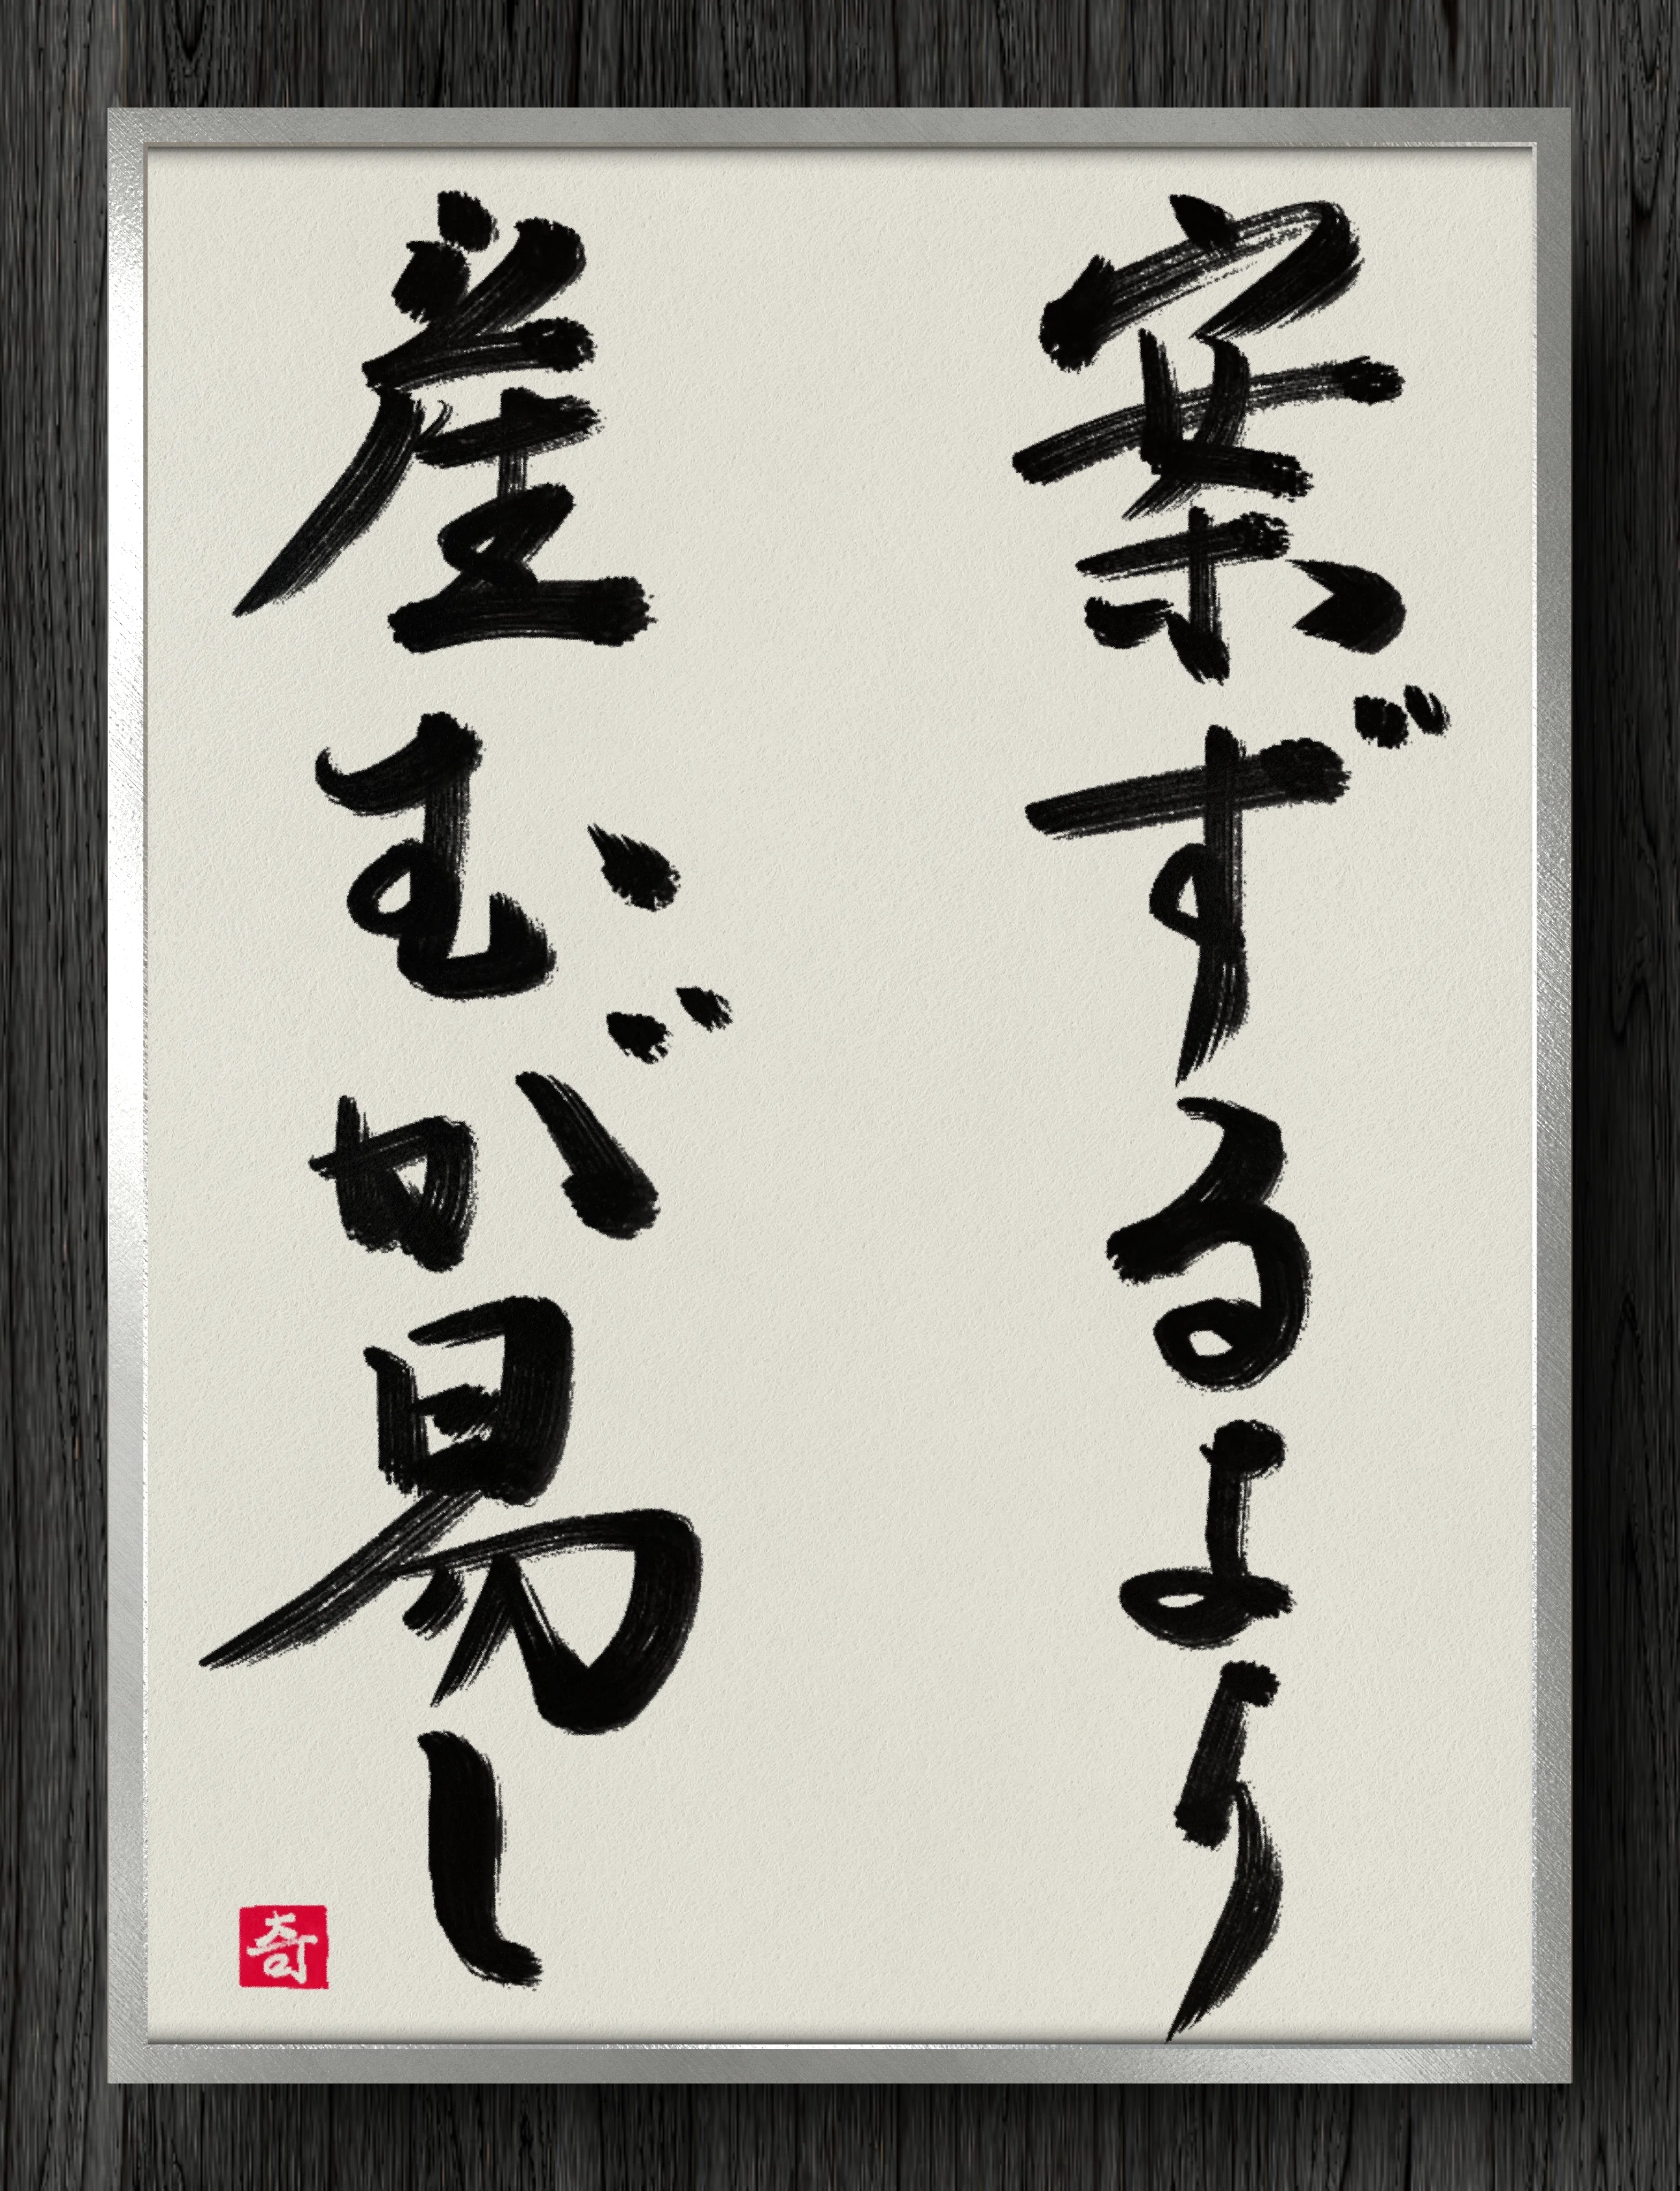 案ずるより
産むが易し
奇